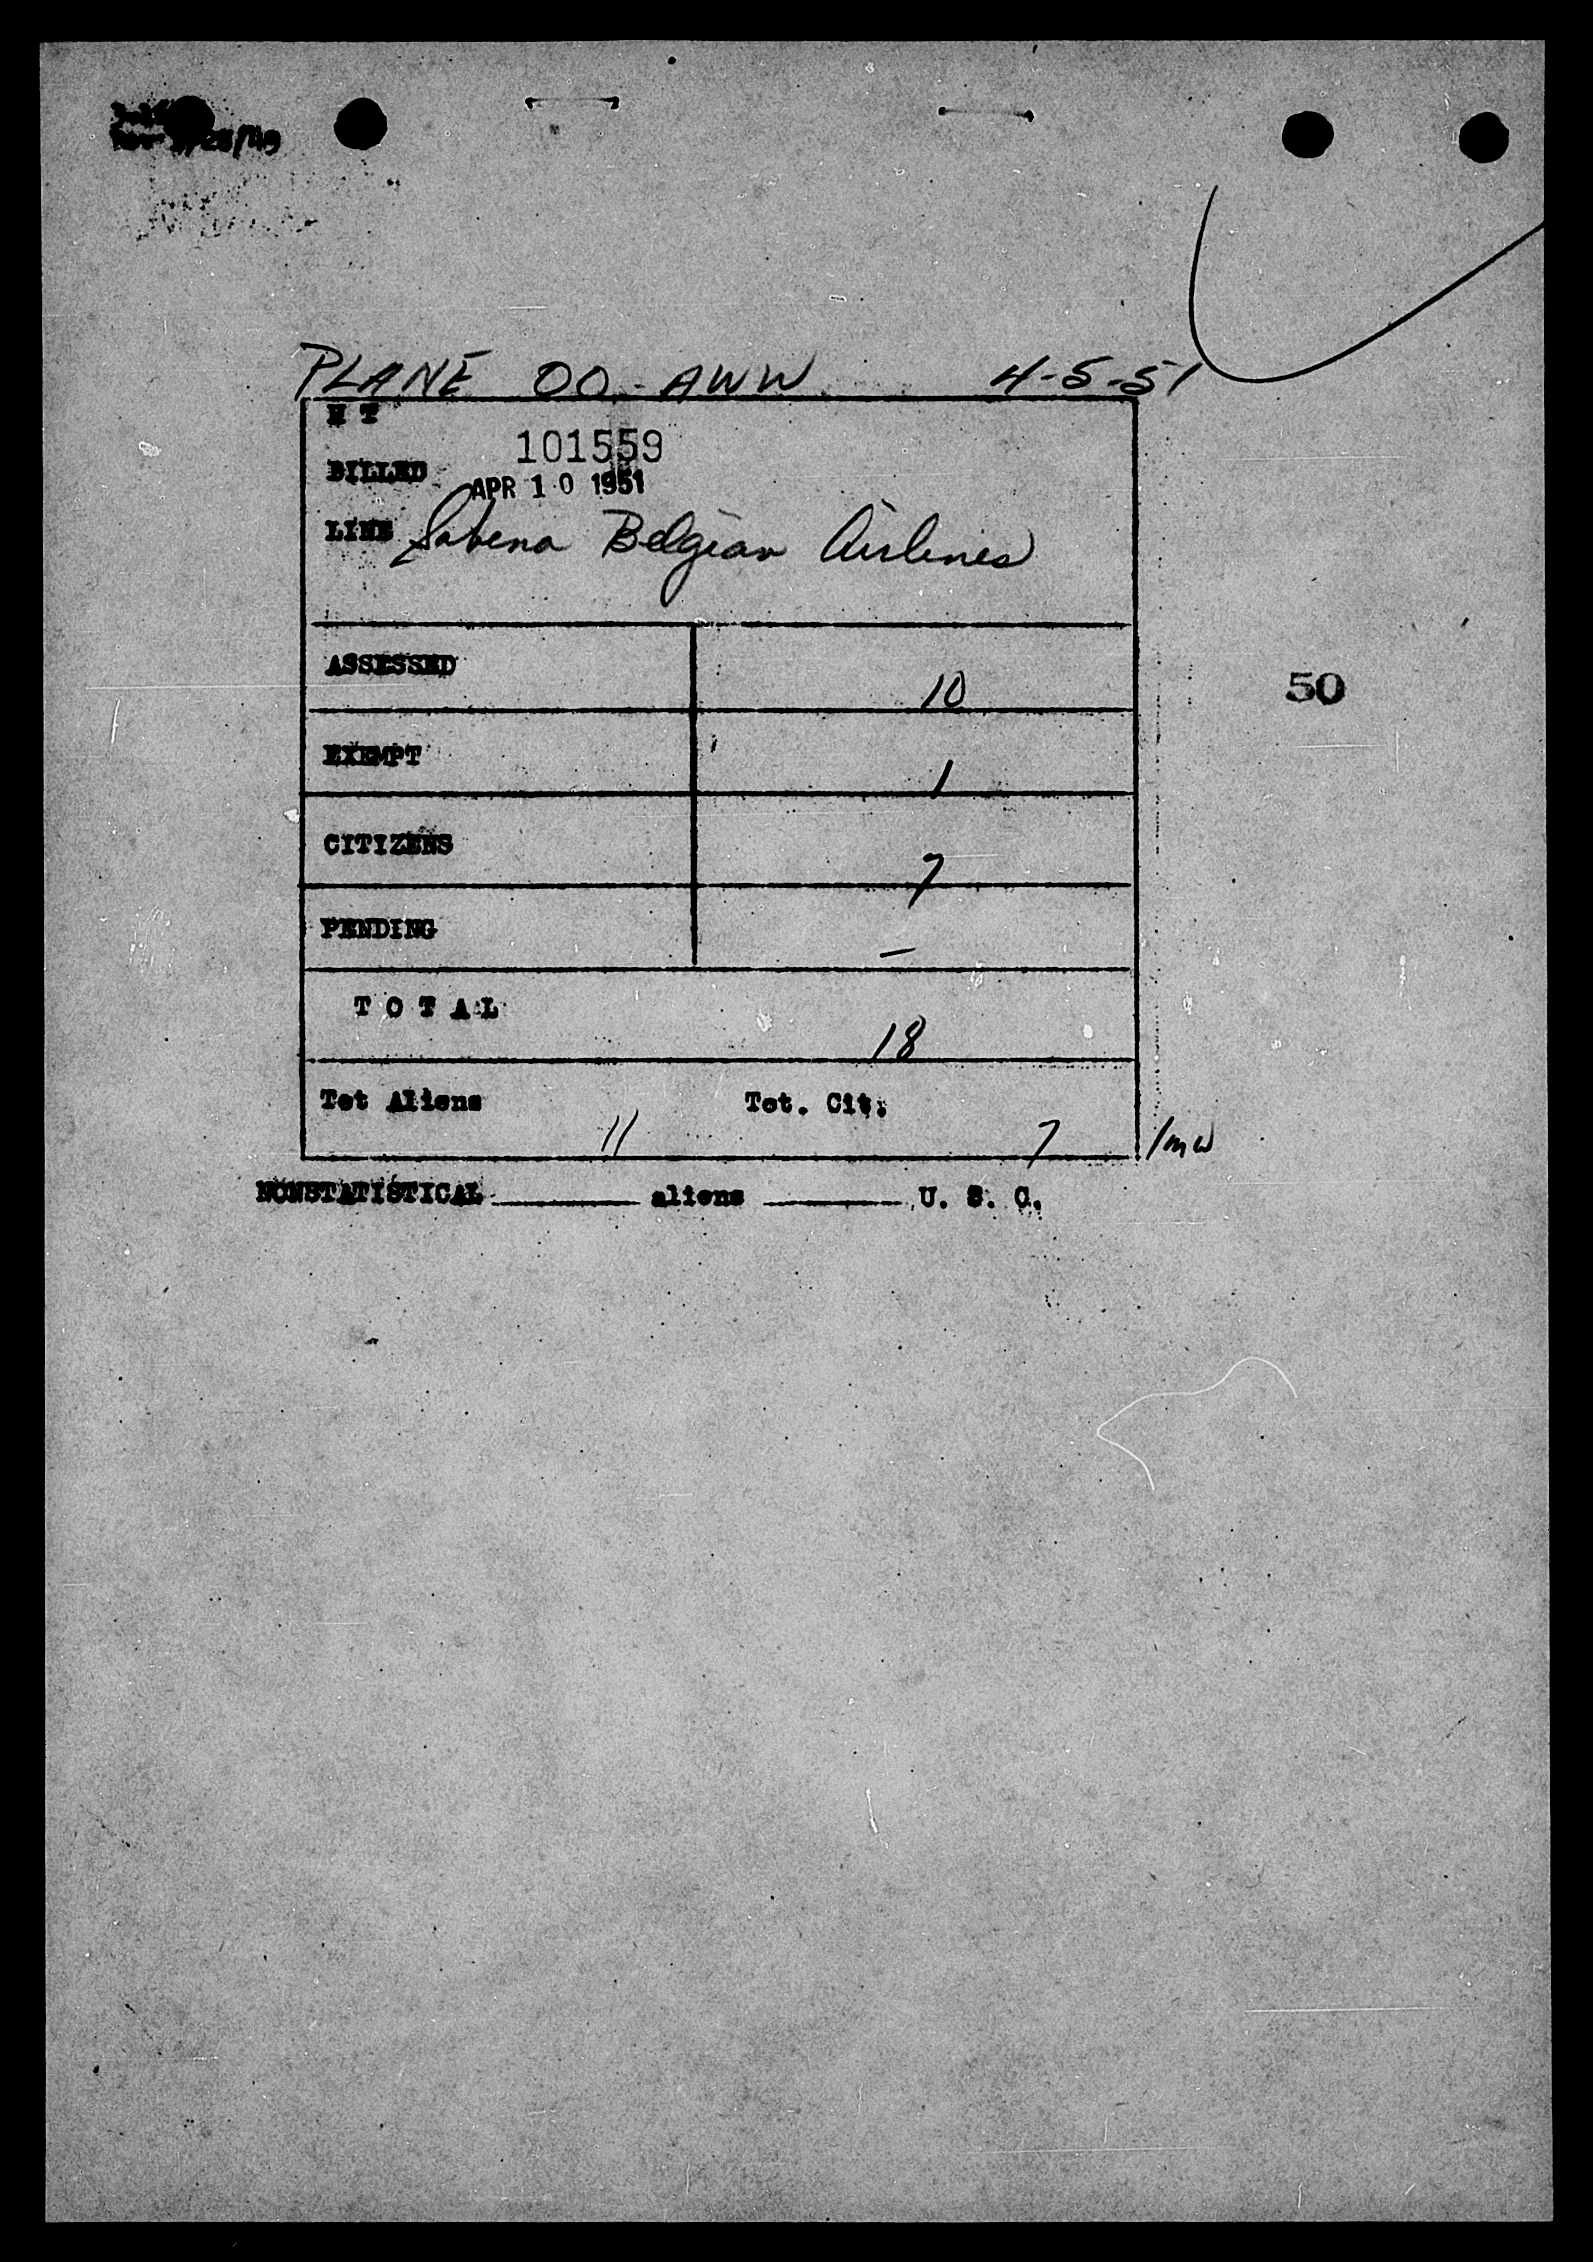 PLANE OO-AWW 4-5-51
101559
BILLED APR 10 1951
LINE Sabena Belgian Airlines
ASSESSED 10
50
EXEMPT 1
CITIZENS 7
PENDING —
TOTAL 18
Tot Aliens 11 Tot. Cit. 7 /mw
NONSTATISTICAL ______ aliens ______ U. S. C.